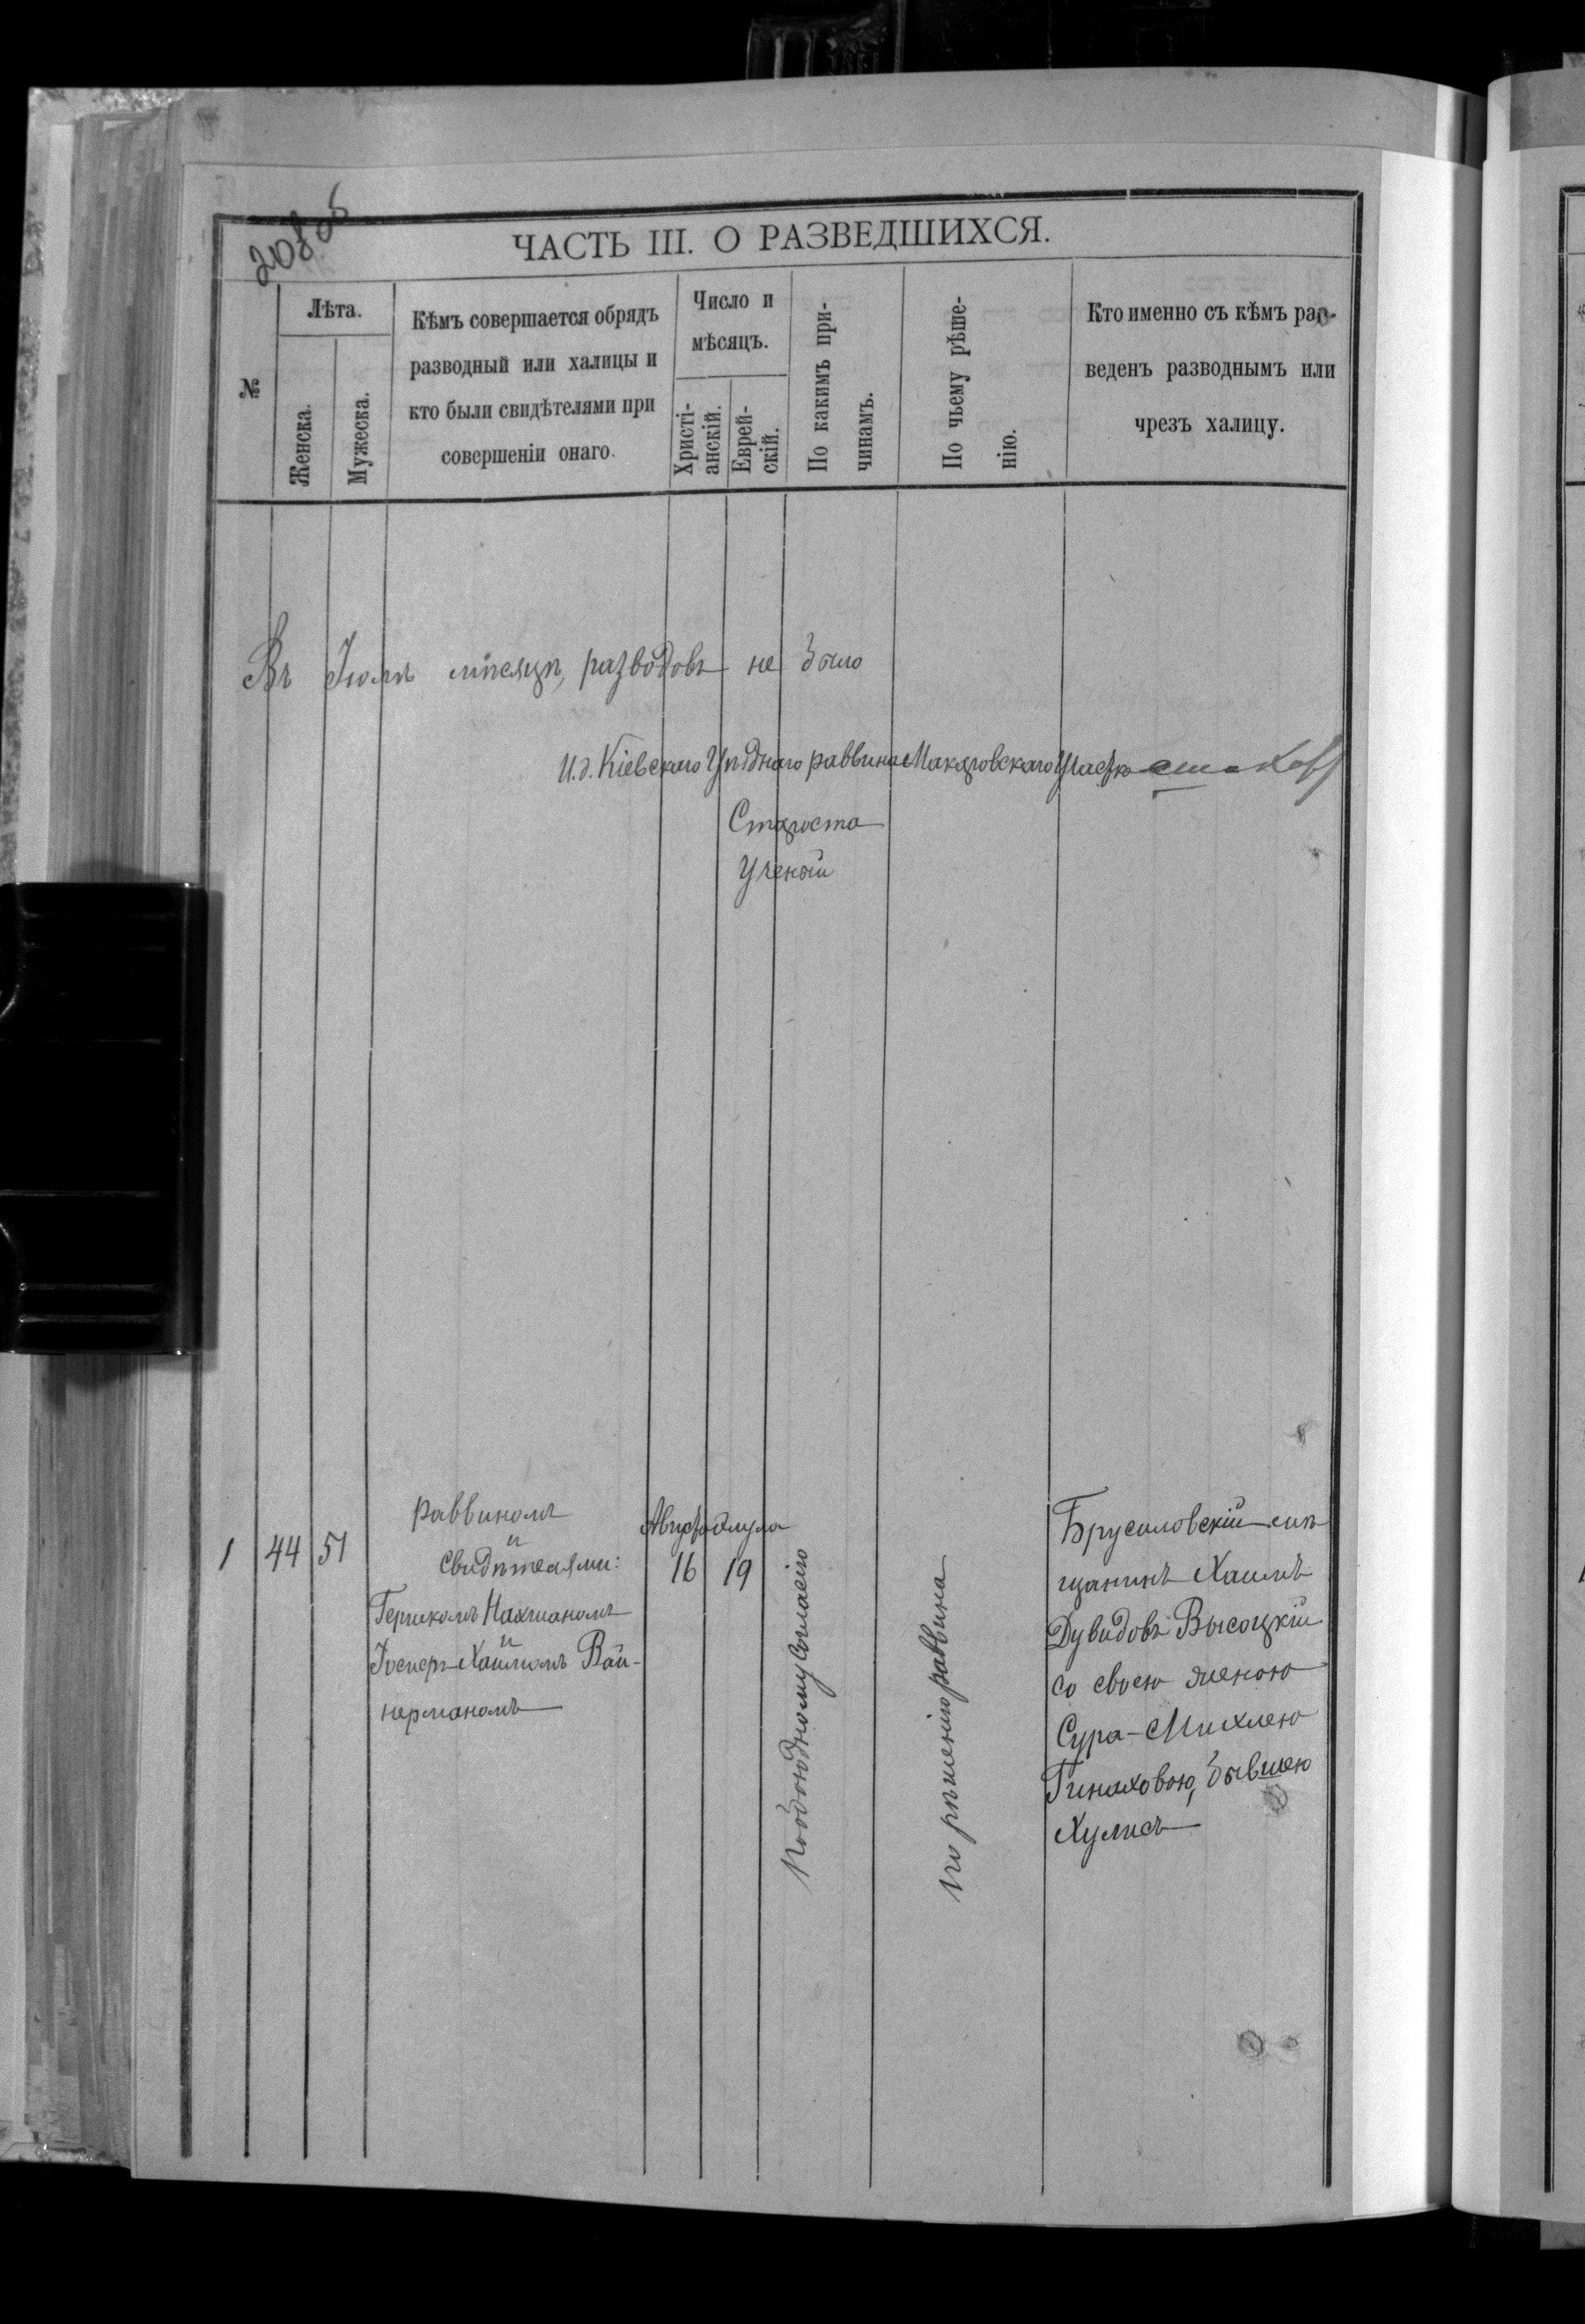 208 об
ЧАСТЬ III. О РАЗВЕДШИХСЯ.
№
Лѣта.
Женска.
Мужеска.
Кѣмъ совершается обрядъ
разводный или халицы и
кто были свидѣтелями при
совершеніи онаго.
Число и
мѣсяцъ.
Христі-
анскій.
Еврей-
скій.
По какимъ при-
чинамъ.
По чьему рѣше-
нію.
Кто именно съ кѣмъ раз-
веденъ разводнымъ или
чрезъ халицу.
Въ Іюлѣ мѣсяцѣ, разводовъ не было
И. д. Кіевскаго Уѣзднаго раввина Макаровскаго Участка
Староста
Ученый
1 44 51
раввиномъ
и
свидѣтелями:
Гершкомъ Нахманомъ
и
Іосифъ-Хаимомъ Вай-
нерманомъ
Августа Элула
16 19
По обоюдному согласію
по рѣшенію раввина
Брусиловскій мѣ
щанинъ Хаимъ
Дувидовъ Высоцкій
со своею женою
Сура-Михлею
Пинаховою, бывшею
Хулисъ